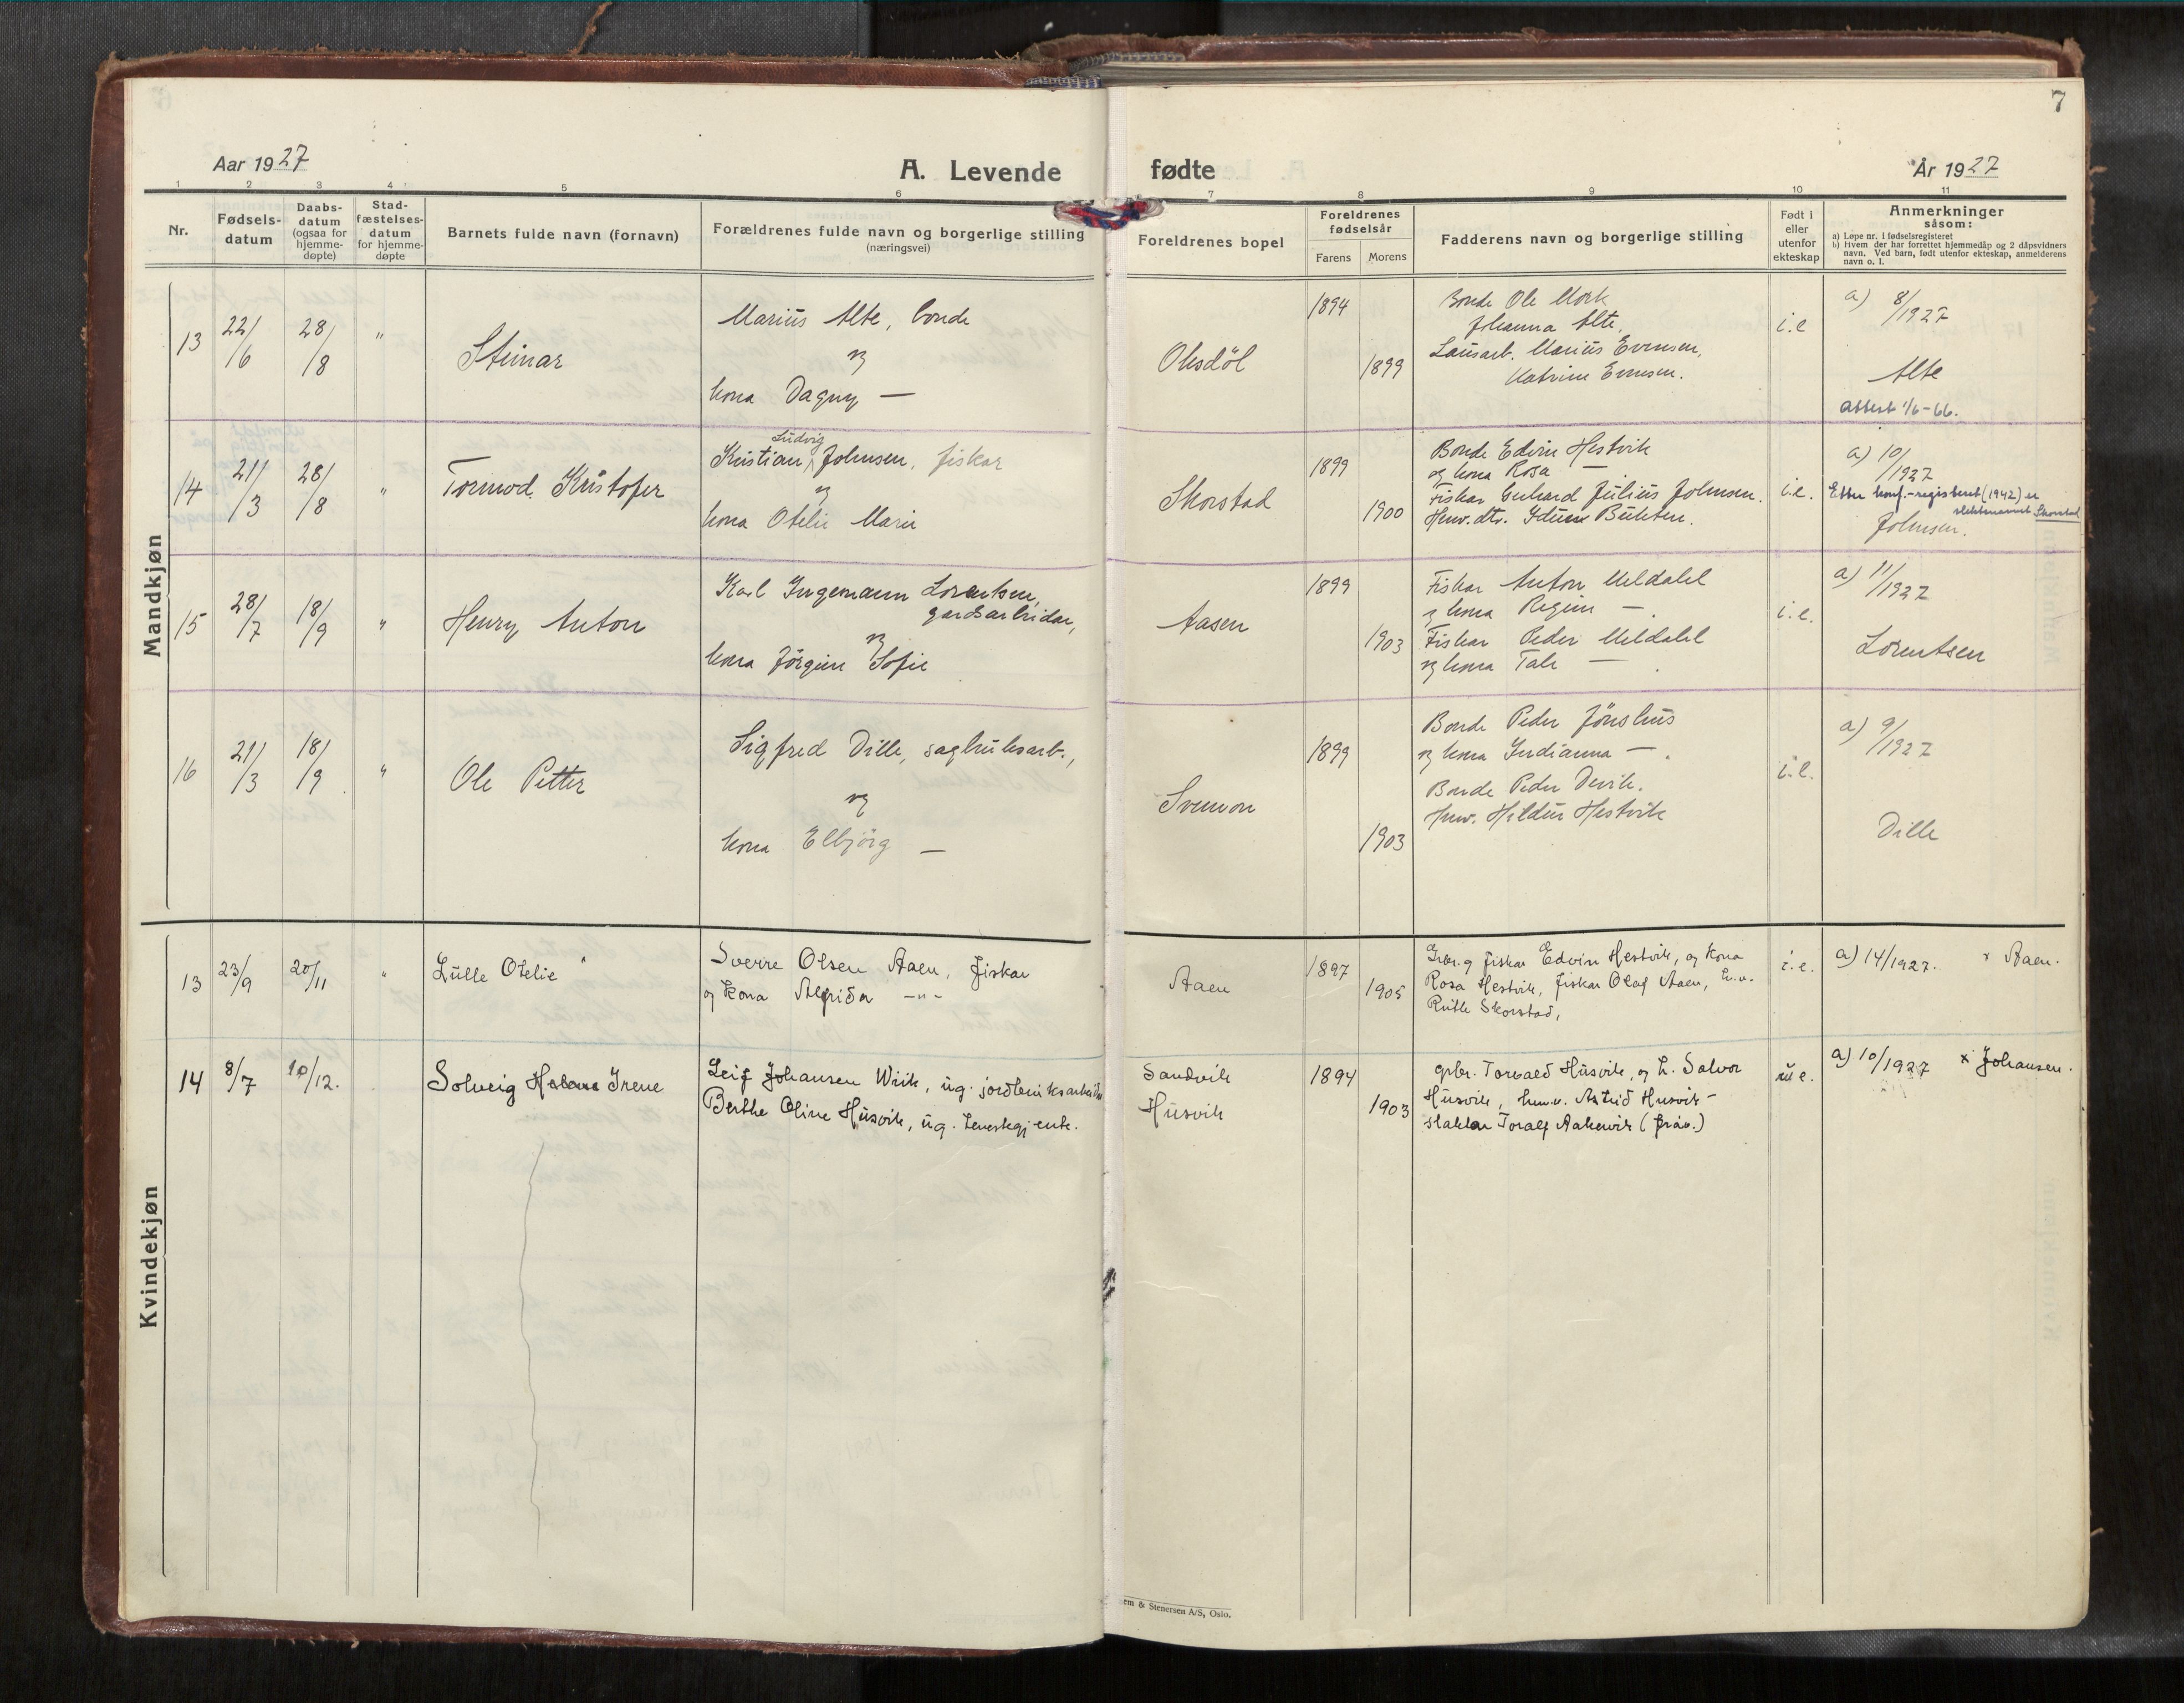 7
Aar 1927
A. Levende
fødte
År 1927
1 2 3 4 5 6 7 8 9 10 11
Nr.
Fødsels-
datum
Daabs-
datum
(ogsaa for
hjemme-
døpte)
Stad-
fæstelses-
datum
for hjemme-
døpte
Barnets fulde navn (fornavn)
Forældrenes fulde navn og borgerlige stilling
(næringsvei)
Foreldrenes bopel
Foreldrenes
fødselsår
Farens
Morens
Fadderens navn og borgerlige stilling
Født i
eller
utenfor
ekteskap
Anmerkninger
såsom:
a) Løpe nr. i fødselsregisteret
b) Hvem der har forrettet hjemmedåp og 2 dåpsvidners
navn. Ved barn, født utenfor ekteskap, anmelderens
navn o. l.
Mandkjøn
13
22/6
28/8
"
Steinar
Marius Alte, bonde
og
kona Dagny —
Olsdøl
1894
1899
Bonde Ole Mork
Johanna Alte,
Lausarb. Marius Evensen,
Katrine Evensen.
i.e
a) 8/1927
Alte
Attest 1/6-66.
14
21/3
28/8
"
Tormod Kristofer
Ludvig
Kristian Johnsen, fiskar
og
kona Otelie Marie
Skorstad
1899
1900
Bonde Edvin Hestvik
og kona Rosa —
Fiskar Gerhard Julius Johnsen.
Hmv. dtr.
i.e.
a) 10/1927
Etter konf.-registeret (1942) er
slektsnavnet Skorstad
Johnsen.
15
28/7
18/9
"
Henry Anton
Karl Ingemann Lorentsen,
gardsarbeidar,
og
kona Jørgine Sofie
Aasen
1899
1903
Fiskar Anton Meldalel
og kona Regine — .
Fiskar Peder Meldalel
og kona Tale — .
i.e.
a) 11/1927
Lorentsen
16
21/3
18/9
"
Ole Petter
Sigfred Dille, sagbruksarb.,
og
kona Elbjørg —
Svemon
1899
1903
Bonde Peder Jønshus
og kona Indianna — .
Bonde Peder Devik.
Hmv. Hildur Hestvik
i.e.
a) 9/1927
Dille
Kvindekjøn
13
23/9
20/11
"
Lulle Otelie
Sverre Olsen Aaen, fiskar
og kona Alfrida -"-
Aaen
1897
1905
Gbr. og fiskar Edvin Hestvik, og kona
Rosa Hestvik, fiskar Olaf Aaen, h.v.
Ruth Skorstad,
i.e.
a) 14/1927.
x Aaen.
14
8/7
10/12.
Solveig Helene Irene
Leif Johansen Wiik, ug. jordbruksarbeider
Berthe Oline Husvik, ug. tenestegjente.
Sandvik
Husvik
1894
1903
gbr. Torvald Husvik, og h. Salvor
Husvik, hm.v. Astrid Husvik -
Toralf Aakervik (fråv.)
u e.
a) 10/1927
x Johansen.
em & Stenersen A/S, Oslo.